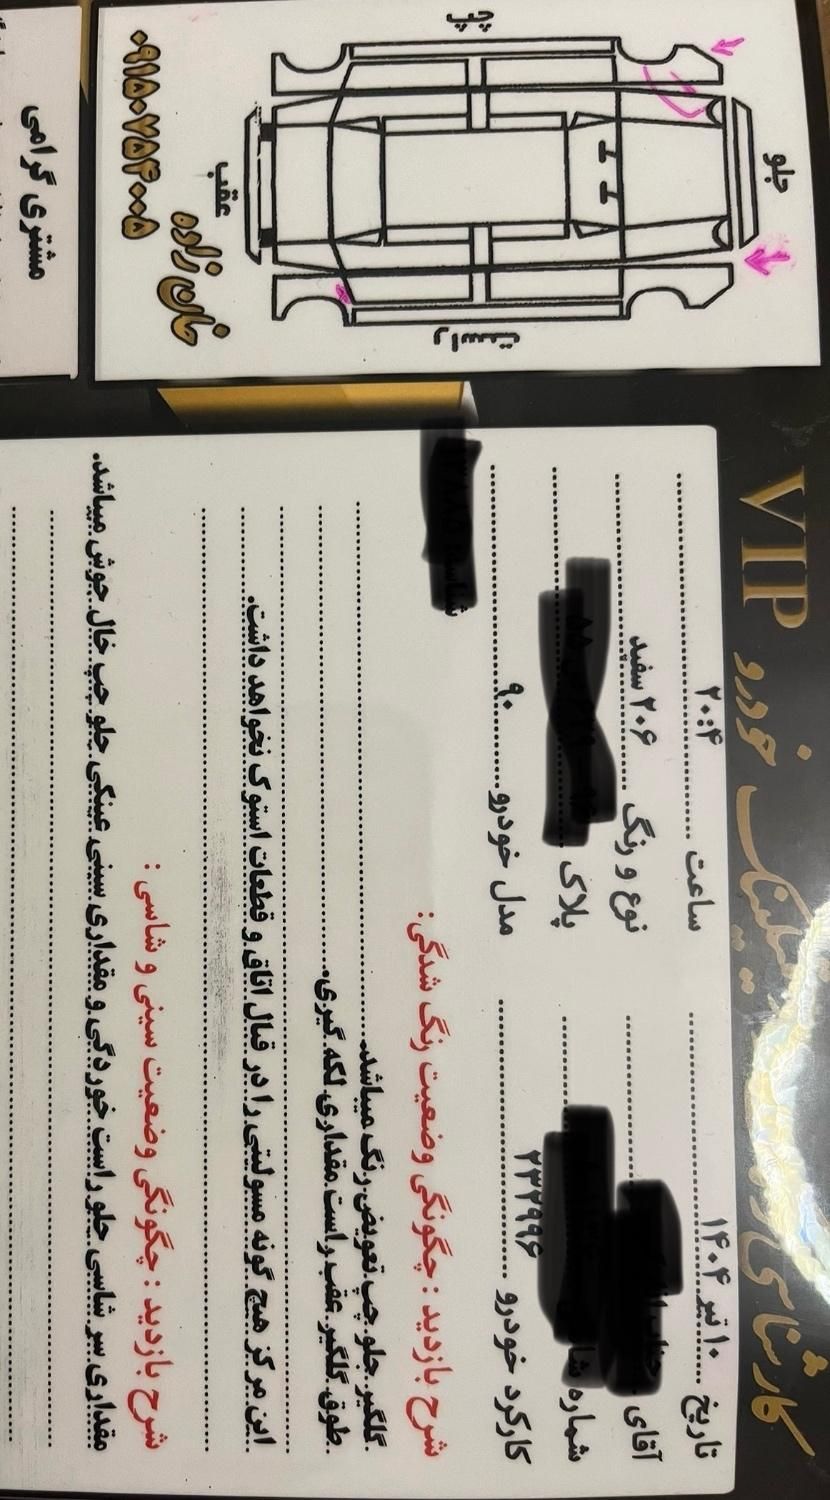 VIP
کارشناسی و
خودرو
تاریخ ۱۰ تیر ۱۴۰۴
ساعت ۲۰:۴
آقای
نوع و رنگ ۲۰۶ سفید
شماره
پلاک
کارکرد خودرو ۲۳۲۹۹۶
مدل خودرو ۹۰
شرح بازدید : چگونگی وضعیت رنگ شدگی:
گلگیر جلو چپ تعویض رنگ میباشد.
طوق گلگیر عقب راست مقداری لکه گیری.
این مرکز هیچ گونه مسولیتی را در قبال اتاق و قطعات استوک نخواهد داشت.
شرح بازدید : چگونگی وضعیت سینی و شاسی :
مقداری سر شاسی جلو راست خوردگی و مقداری سینی عینکی جلو چپ خال جوش میباشد.
جلو
چپ
راست
عقب
خان زاده
۰۹۱۵۰۷۵۴۰۰۵
مشتری گرامی